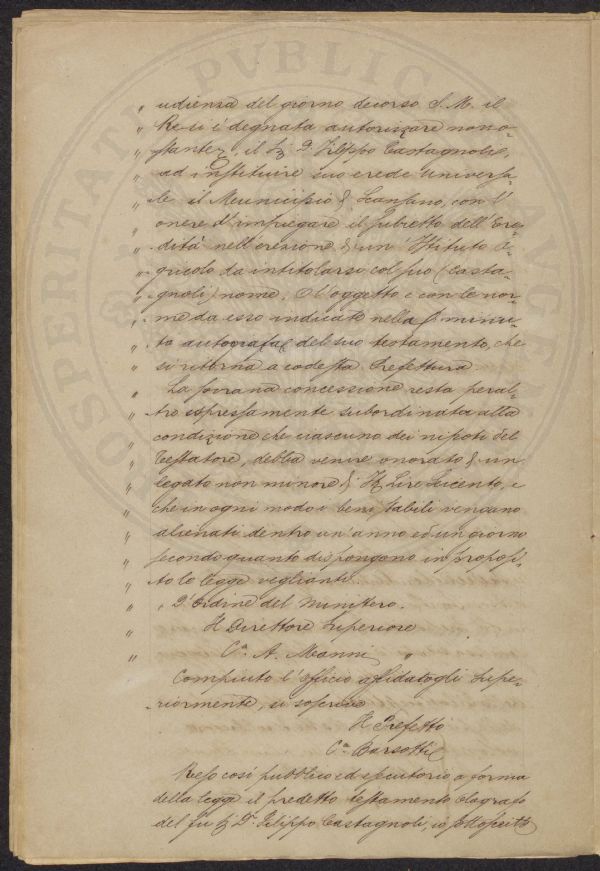 " udienza del giorno decorso S. M. il
" Re si è degnata autorizzare nono-
" stante, il Sig. D. Filippo Castagnoli,
" ad instituire suo erede universa-
" le il Municipio di con l'
" onere d'impiegare il subietto dell'Ere-
" dità nell'erezione di un Istituto A-
" gricolo da intitolarsi col suo (Casta-
" gnoli) nome, l'oggetto e con le nor-
" me da esso indicate nella minu-
" ta autografa del suo testamento, che
" si ritorna a codesta Prefettura.
" La sovrana concessione resta peral-
" tro espressamente subordinata alla
" condizione che ciascuno dei nipoti del
" Testatore, debba venire onorato di un
" legato non minore di Lire Seicento, e
" che in ogni modo i beni stabili vengano
" alienati dentro un'anno ed un giorno
" secondo quanto dispongono in proposi-
" to le leggi veglianti.
" D'ordine del Ministero.
" Il Direttore Superiore
" A. Manni "
Compiuto l'Officio affidatogli Supe-
riormente, si soscrive
Il Prefetto
Barsotti
Reso così pubblico ed esecutorio a forma
della legge il predetto testamento Olografo
del fu Sig. Dr. Filippo Castagnoli, io sottoscritto
PROSPERITATI PUBLICAE AUGE